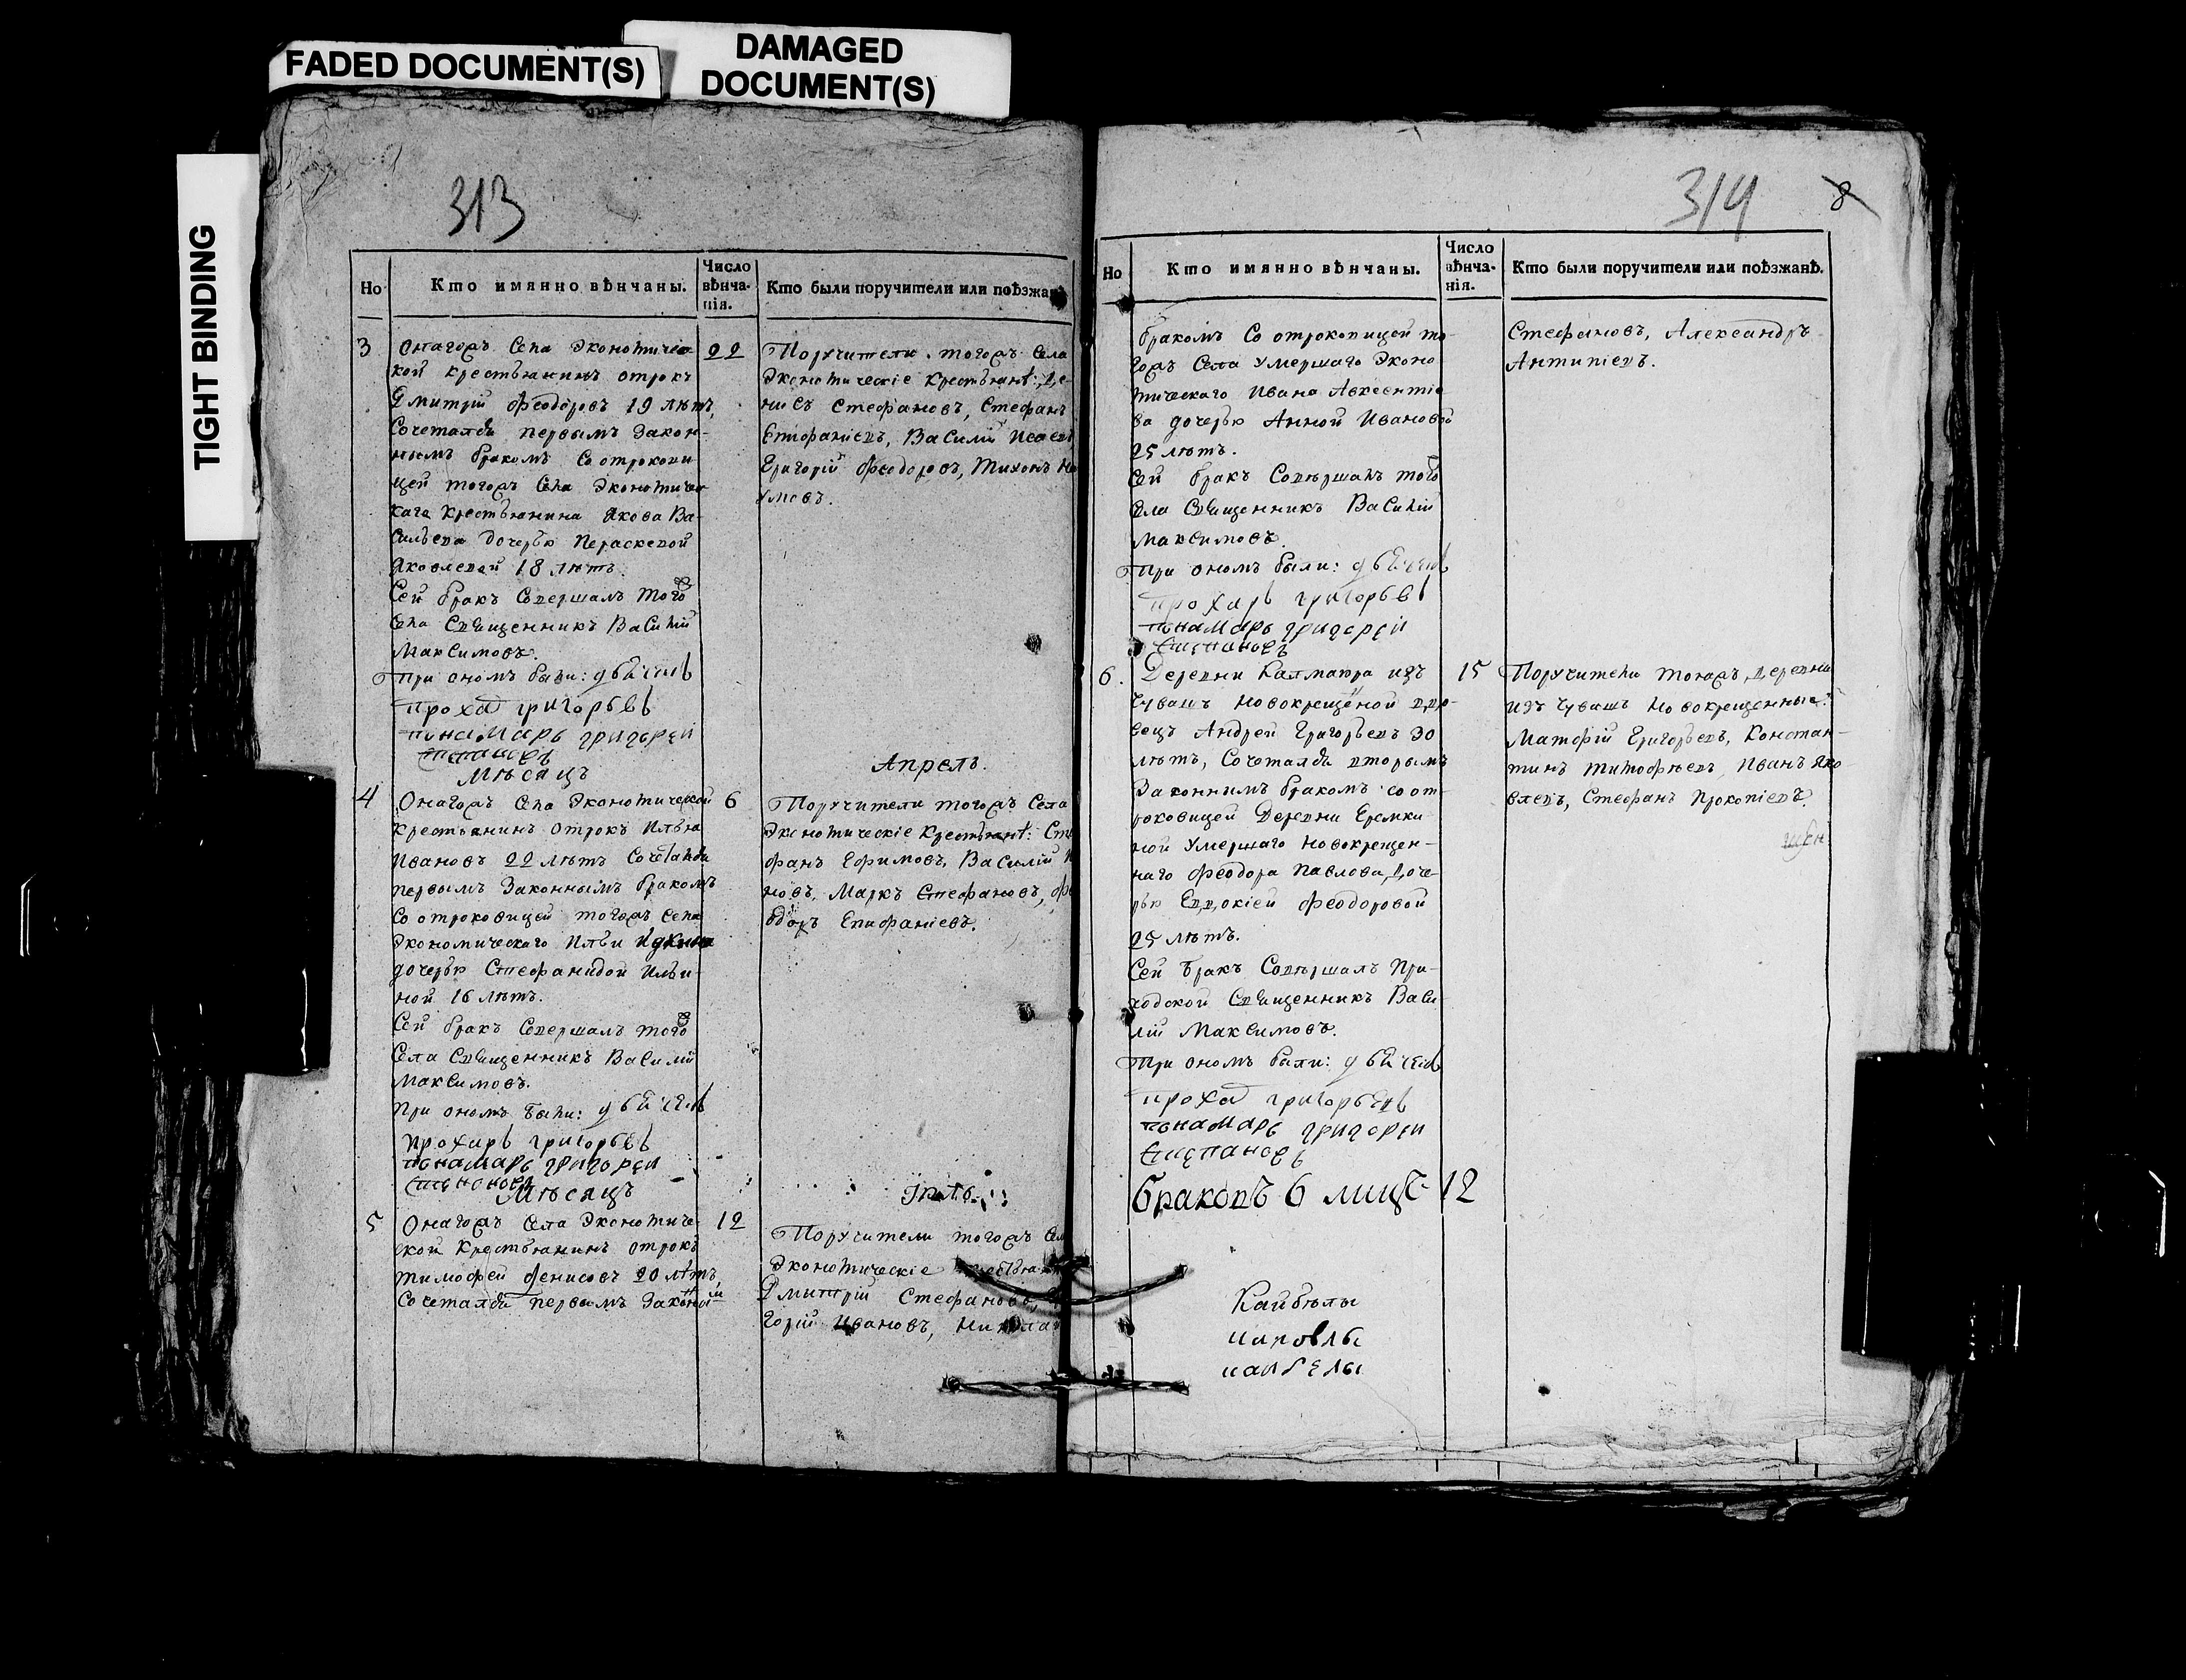 FADED DOCUMENT(S)
DAMAGED
DOCUMENT(S)
TIGHT BINDING
313
Но
Кто имянно вѣнчаны.
Число
вѣнча-
нія.
Кто были поручители или поѣзжанѣ
3
Онагожъ Села Экономичес
кой крестьянинъ отрокъ
Дмитрій Феодоровъ 19 лѣтъ,
Сочетался первымъ Закон-
нымъ бракомъ со отрокови
цей тогожъ Села Экономичес
каго крестьянина Якова Ва-
сильева дочерью Параскевой
Яковлевой 18 лѣтъ.
Сей бракъ Совершалъ того
Села Священникъ Василій
Максимовъ.
При ономъ были: дьячекъ
прохоръ григорьевъ
понамарь григорей
степановъ
22
Поручители тогожъ Села
Экономическіе крестьянѣ: Де-
нисъ Стефановъ, Стефанъ
Епифаніевъ, Василій Исаевъ
Григорій Феодоровъ, Тихонъ На
умовъ.
Мѣсяцъ
Апрель.
4
Онагожъ Села Экономической
крестьянинъ отрокъ Илья
Ивановъ 22 лѣтъ Сочетался
первымъ Законнымъ бракомъ
со отроковицей тогожъ Села
Экономическаго Ильи
дочерью Стефанидой Ильи-
ной 16 лѣтъ.
Сей бракъ Совершалъ того
Села Священникъ Василій
Максимовъ.
При ономъ были: дьячекъ
прохоръ григорьевъ
понамарь григорей
степановъ
6
Поручители тогожъ Села
Экономическіе крестьянѣ: Сте
фанъ Ефимовъ, Василій И
новъ, Маркъ Стефановъ, Фе
одоръ Епифаніевъ.
Мѣсяцъ
Іюль
5
Онагожъ Села Экономиче-
ской крестьянинъ отрокъ
Тимофей Денисовъ 20 лѣтъ,
Сочетался первымъ Законным
12
Поручители тогожъ Села
Экономическіе крестьянѣ
Дмитрій Стефановъ, Г
горій Ивановъ, Николай
314
8
Но
Кто имянно вѣнчаны.
Число
вѣнча-
нія.
Кто были поручители или поѣзжанѣ.
бракомъ Со отроковицей то-
гожъ Села Умершаго Эконо
мическаго Ивана Авксентіе
ва дочерью Анной Ивановой
25 лѣтъ.
Сей бракъ Совершалъ того
Села Священникъ Василій
Максимовъ.
При ономъ были: дьячекъ
прохоръ григорьевъ
понамарь григорей
степановъ
Стефановъ, Александръ
Антипіевъ.
6.
Деревни Калматра изъ
Чувашъ Новокрещеной вдо-
вецъ Андрей Григорьевъ 30
лѣтъ, Сочетался вторымъ
Законнымъ бракомъ со от-
роковицей Деревни Еремки
ной Умершаго Новокрещен-
наго Феодора Павлова, доче-
рью Евдокіей Феодоровой
25 лѣтъ.
Сей бракъ Совершалъ При-
ходской Священникъ Васи
лій Максимовъ.
При ономъ были: дьячекъ
прохоръ григорьевъ
понамарь григорей
степановъ
15
Поручители тогожъ, деревни
изъ Чувашъ Новокрещенные:
Матфій Григорьевъ, Констан-
тинъ Тимофѣевъ, Иванъ Яко-
влевъ, Стефанъ Прокопіевъ.
браковъ 6 лицъ 12
Кайбѣлы